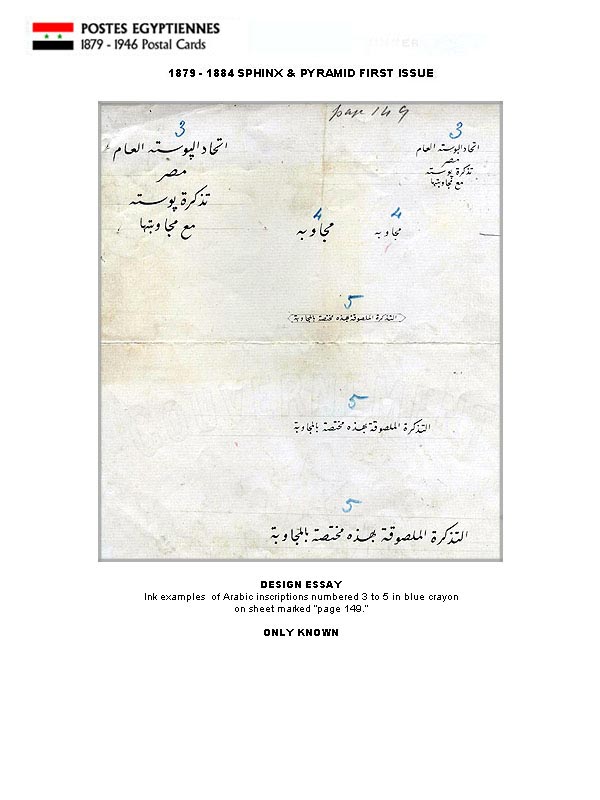 POSTES EGYPTIENNES
1879 - 1946 Postal Cards
1879 - 1884 SPHINX & PYRAMID FIRST ISSUE
page 149
3
اتحاد الپوسته العام
مصر
تذكرة پوسته
مع مجاوبتها
3
اتحاد الپوسته العام
مصر
تذكرة پوسته
مع مجاوبتها
4
مجاوبه
4
مجاوبه
5
التذكرة الملصوقة بهذه مختصة بالمجاوبة
5
التذكرة الملصوقة بهذه مختصة بالمجاوبة
5
التذكرة الملصوقة بهذه مختصة بالمجاوبة
DESIGN ESSAY
Ink examples of Arabic inscriptions numbered 3 to 5 in blue crayon
on sheet marked "page 149."
ONLY KNOWN